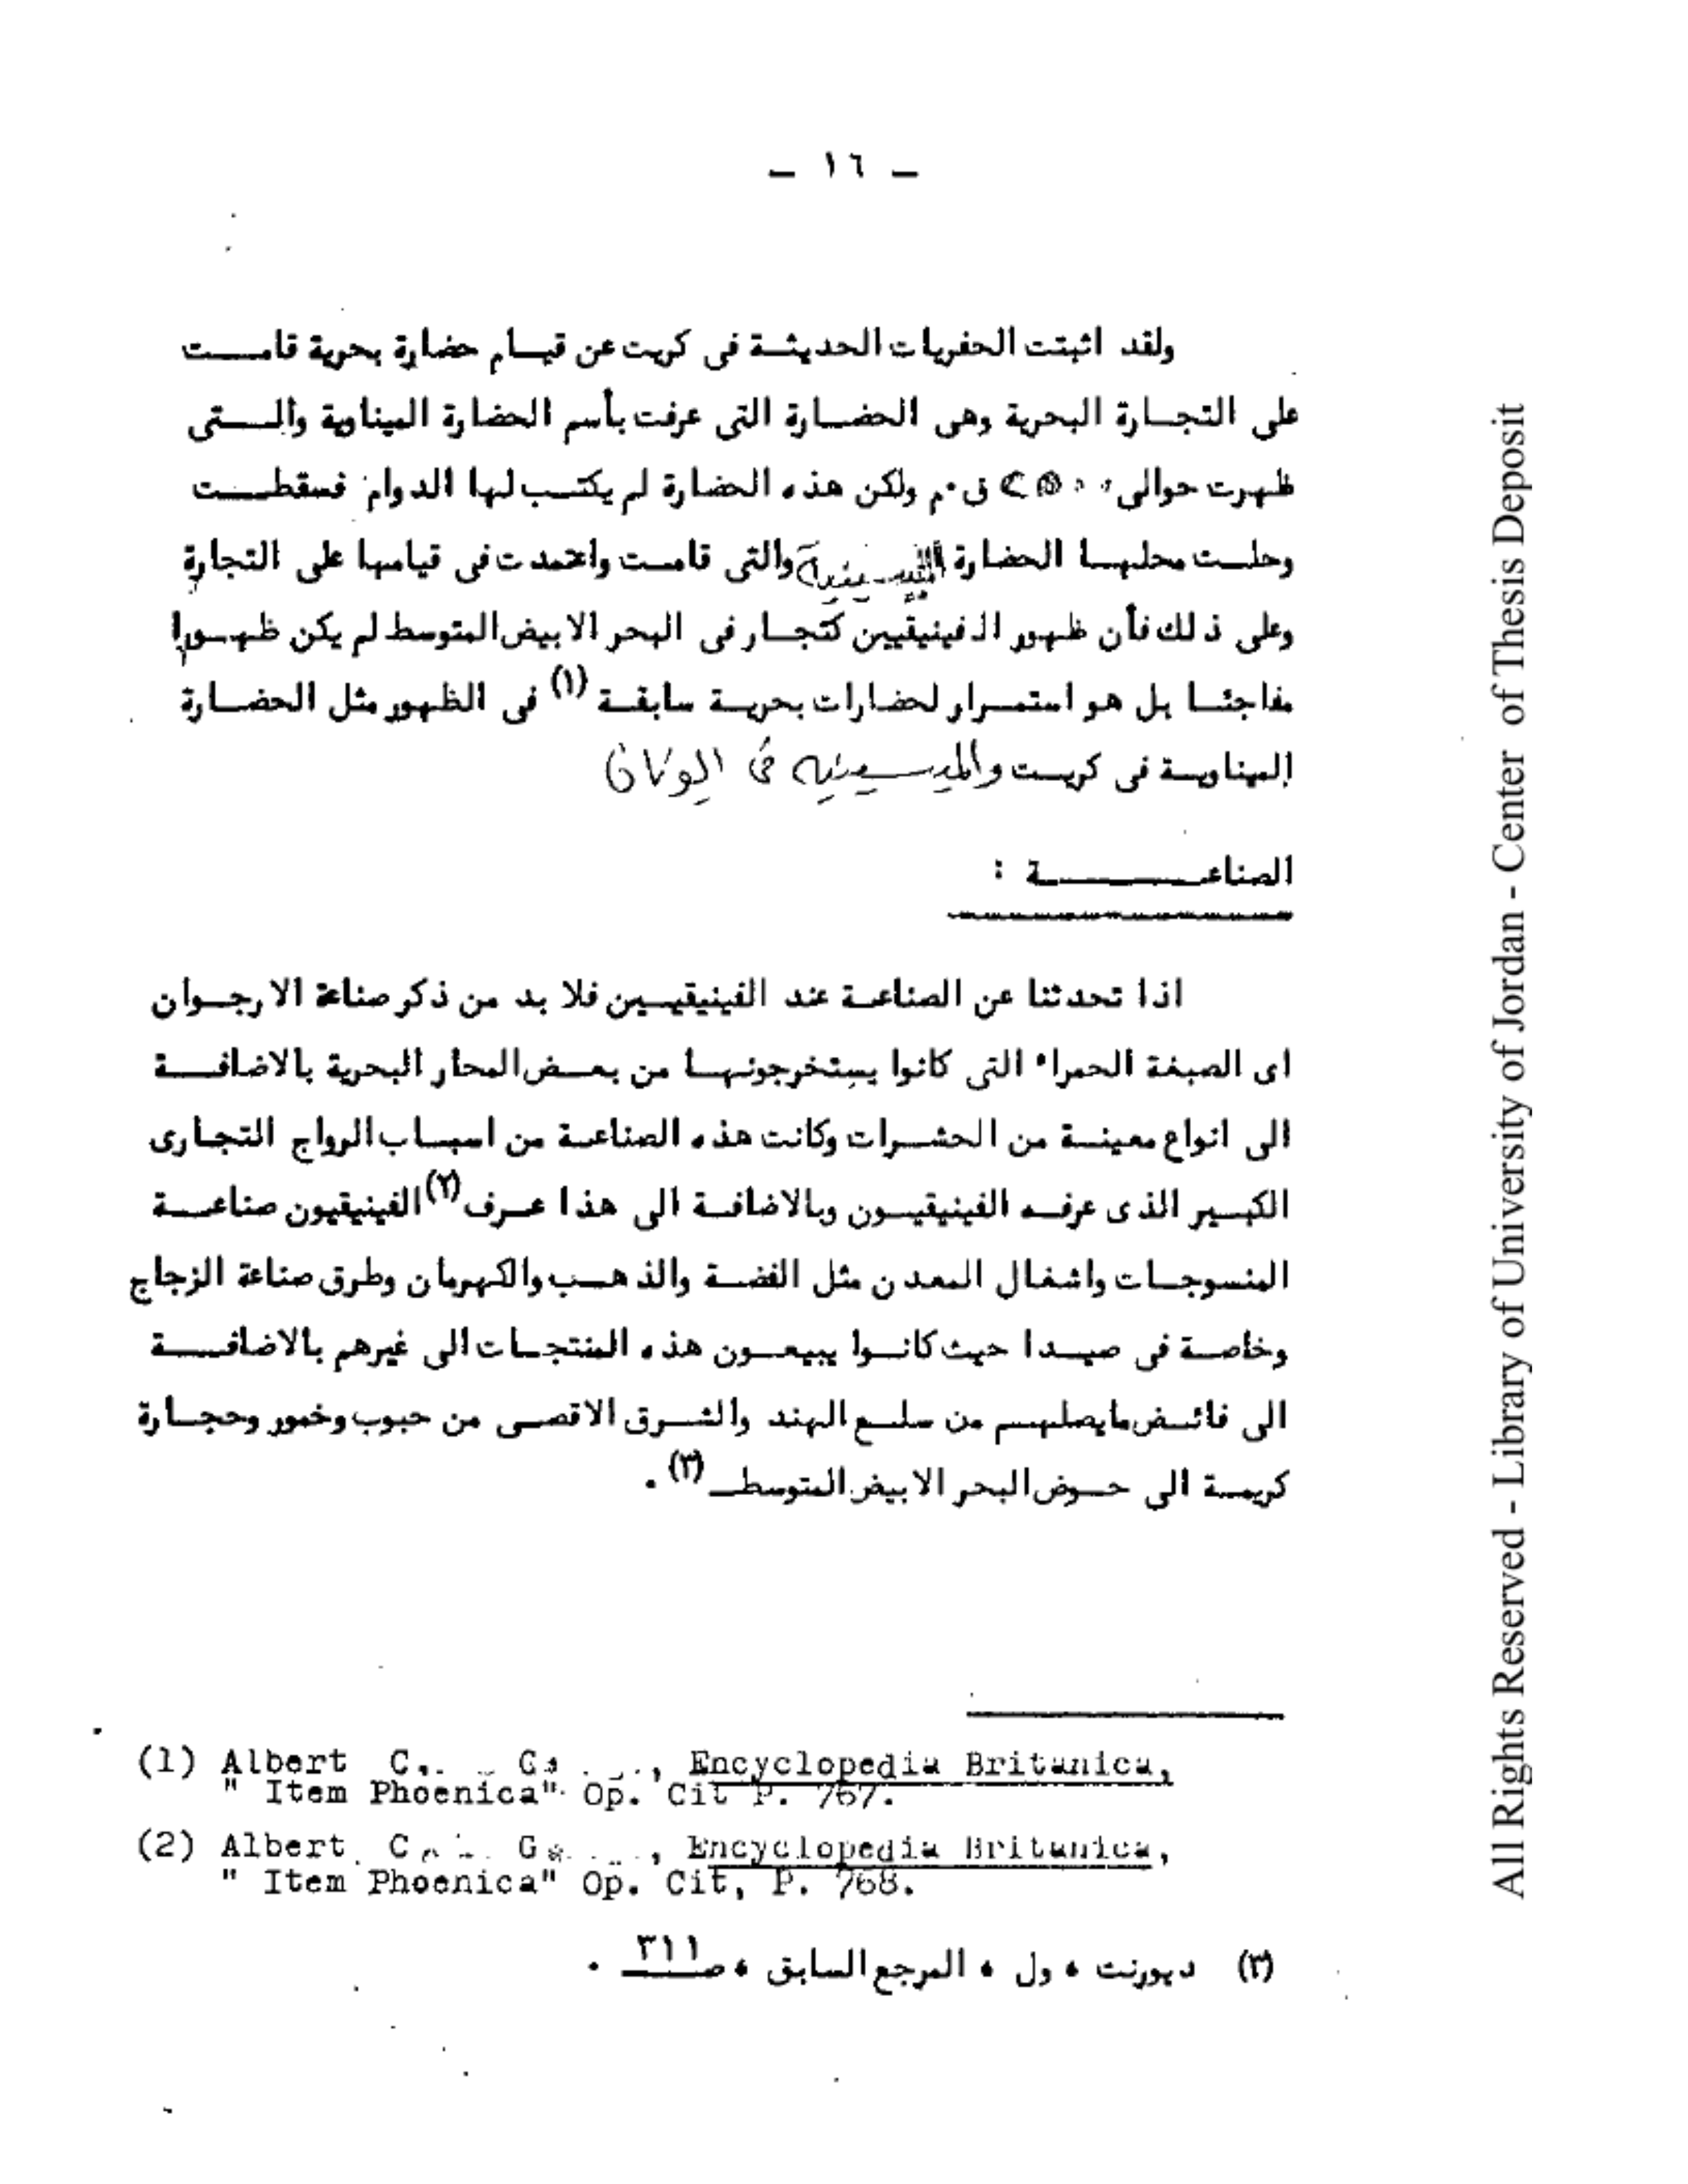 - ١٦ -
ولقد اثبتت الحفريات الحديثة فى كريت عن قيام حضارة بحرية قامت
على التجارة البحرية وهى الحضارة التى عرفت بأسم الحضارة الميناوية والتى
ظهرت حوالى ق٠م ولكن هذه الحضارة لم يكتب لها الدوام فسقطت
وحلت محلها الحضارة والتى قامت واعتمدت فى قيامها على التجارة
وعلى ذلك فأن ظهور الفينيقيين كتجار فى البحر الابيض المتوسط لم يكن ظهورا
مفاجئا بل هو استمرار لحضارات بحرية سابقة (١) فى الظهور مثل الحضارة
الميناوية فى كريت والميسينيه في اليونان
الصناعة :
اذا تحدثنا عن الصناعة عند الفينيقيين فلا بد من ذكر صناعة الارجوان
اى الصبغة الحمراء التى كانوا يستخرجونها من بعض المحار البحرية بالاضافة
الى انواع معينة من الحشرات وكانت هذه الصناعة من اسباب الرواج التجارى
الكبير الذى عرفه الفينيقيون وبالاضافة الى هذا عرف (٢) الفينيقيون صناعة
المنسوجات واشغال المعدن مثل الفضة والذهب والكهرمان وطرق صناعة الزجاج
وخاصة فى صيدا حيث كانوا يبيعون هذه المنتجات الى غيرهم بالاضافة
الى فائض مايصلهم من سلع الهند والشرق الاقصى من حبوب وخمور وحجارة
كريمة الى حوض البحر الابيض المتوسط (٣) .
(1) Albert C. , Encyclopedia Britanica,
" Item Phoenica" Op. Cit P. 767.
(2) Albert C. , Encyclopedia Britanica,
" Item Phoenica" Op. Cit, P. 768.
(٣) ديورنت ، ول ، المرجع السابق ، ص ٣١١ .
All Rights Reserved - Library of University of Jordan - Center of Thesis Deposit